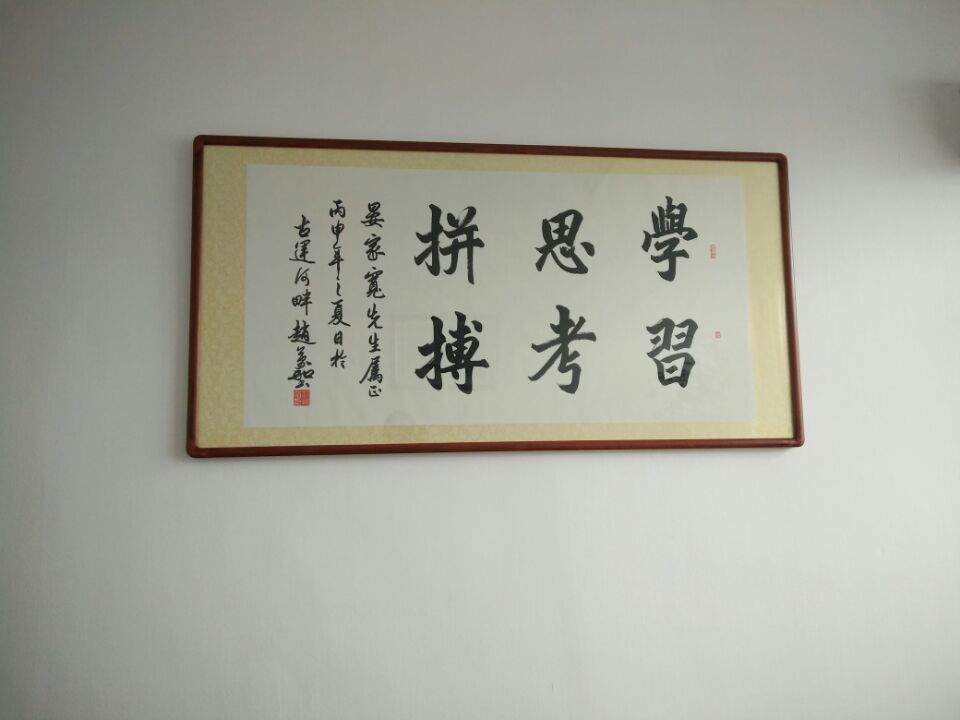 學習
思考
拼搏
晏家寬先生屬正
丙申年之夏日於
古運河畔趙